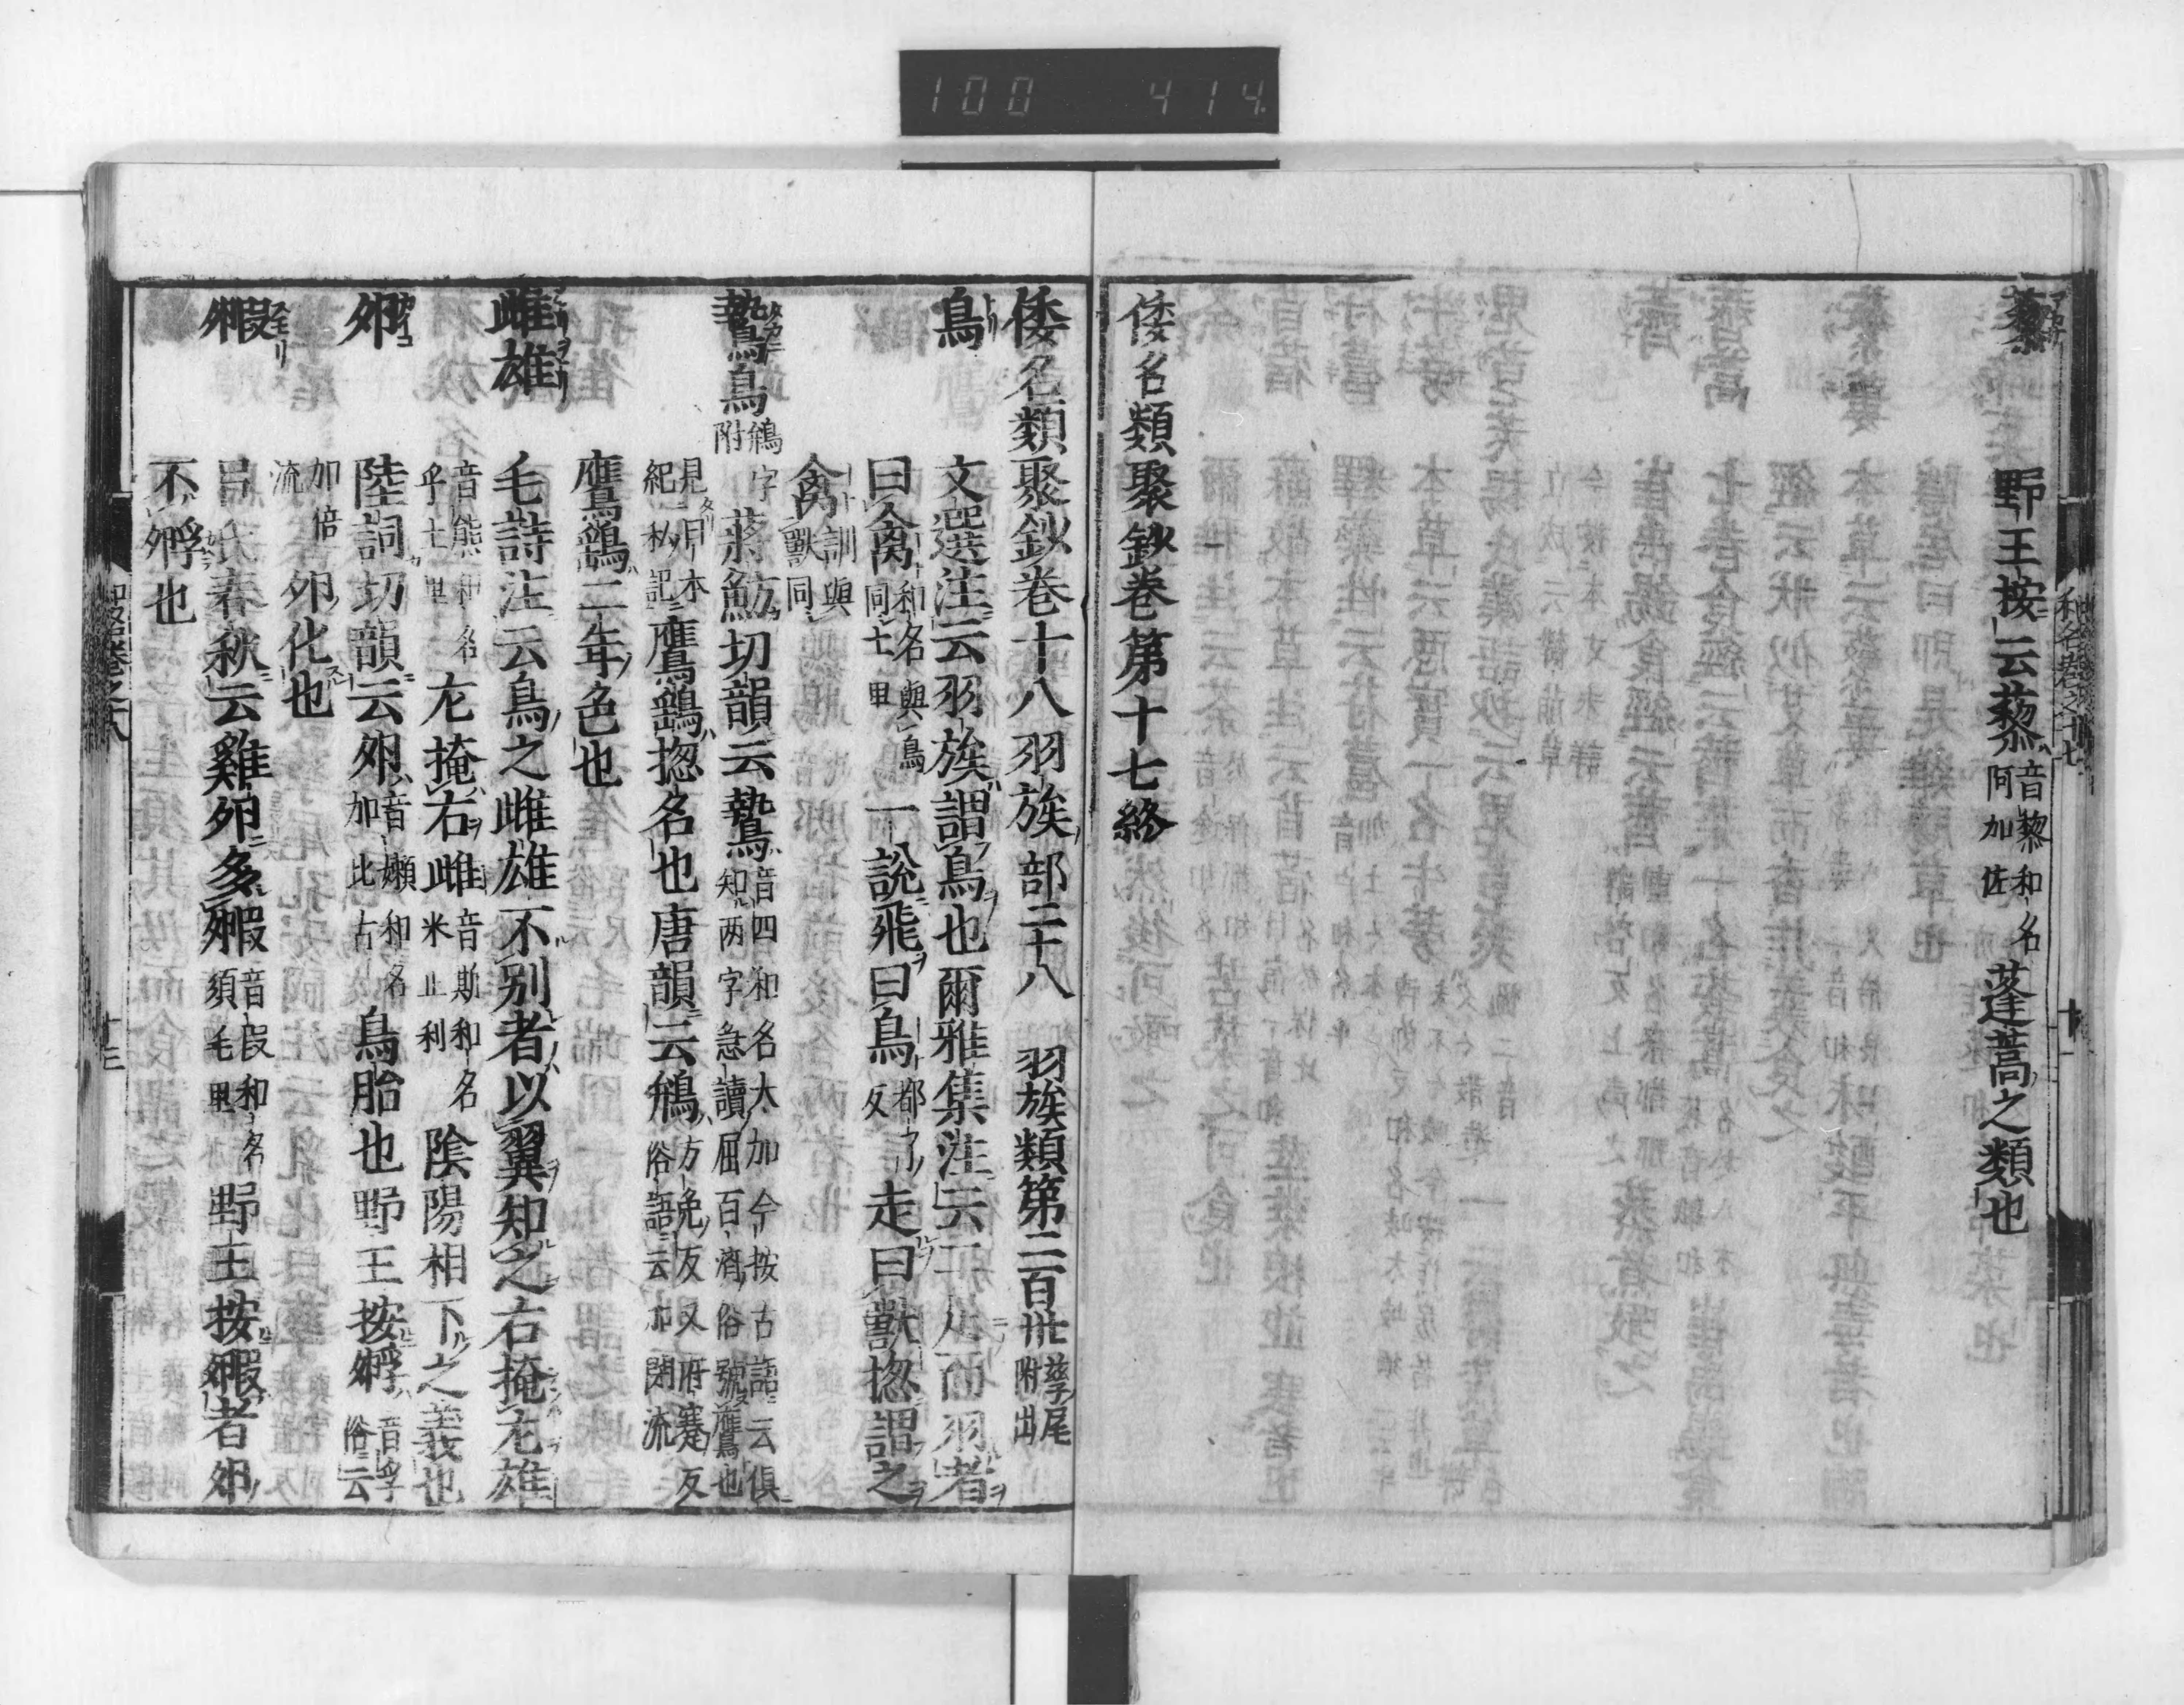 100 414
藜
野王按云藜音黎和名阿加佐蓬蒿之類也
倭名類聚鈔卷第十七終
倭名類聚鈔卷十八羽族部二十八 羽族類第二百卅孳尾附出
鳥
文選注云羽族謂鳥也爾雅集注云二足而羽者
曰禽和名與鳥同土里一說飛曰鳥都了反走曰獸揔謂之
禽訓與獸同
鷙鳥鵵字附
蔣魴切韻云鷙音四和名太加今按古語云俱知兩字急讀屈百濟俗號鷹也
見日本紀私記鷹鷂揔名也唐韻云鵵方免反又府蹇反俗語云加閉流
鷹鷂二年色也
雌雄
毛詩注云鳥之雌雄不別者以翼知之右掩左雄
音熊和名乎土里左掩右雌音斯和名米止利陰陽相下之義也
卵
陸詞切韻云卵音嬾和名加比古鳥胎也野王按孵音孚俗云
加倍流卵化也
毈
呂氏春秋云雞卵多毈音叚和名須毛里野王按毈者卵
不孵也
和名卷之十七
十